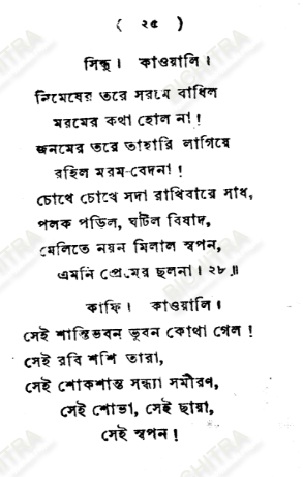 ( ২৫ )
সিন্ধু। কাওয়ালি।
নিমেষের তরে সরমে বাধিল
মরমের কথা হোল না!
জনমের তরে তাহারি লাগিয়ে
রহিল মরম-বেদনা!
চোখে চোখে সদা রাখিবারে সাধ,
পলক পড়িল, ঘটিল বিষাদ,
মেলিতে নয়ন মিলাল স্বপন,
এমনি প্রেমের ছলনা। ২৮॥
কাফি। কাওয়ালি।
সেই শান্তিভবন ভুবন কোথা গেল!
সেই রবি শশি তারা,
সেই শোকশান্ত সন্ধ্যা সমীরণ,
সেই শোভা, সেই ছায়া,
সেই স্বপন!